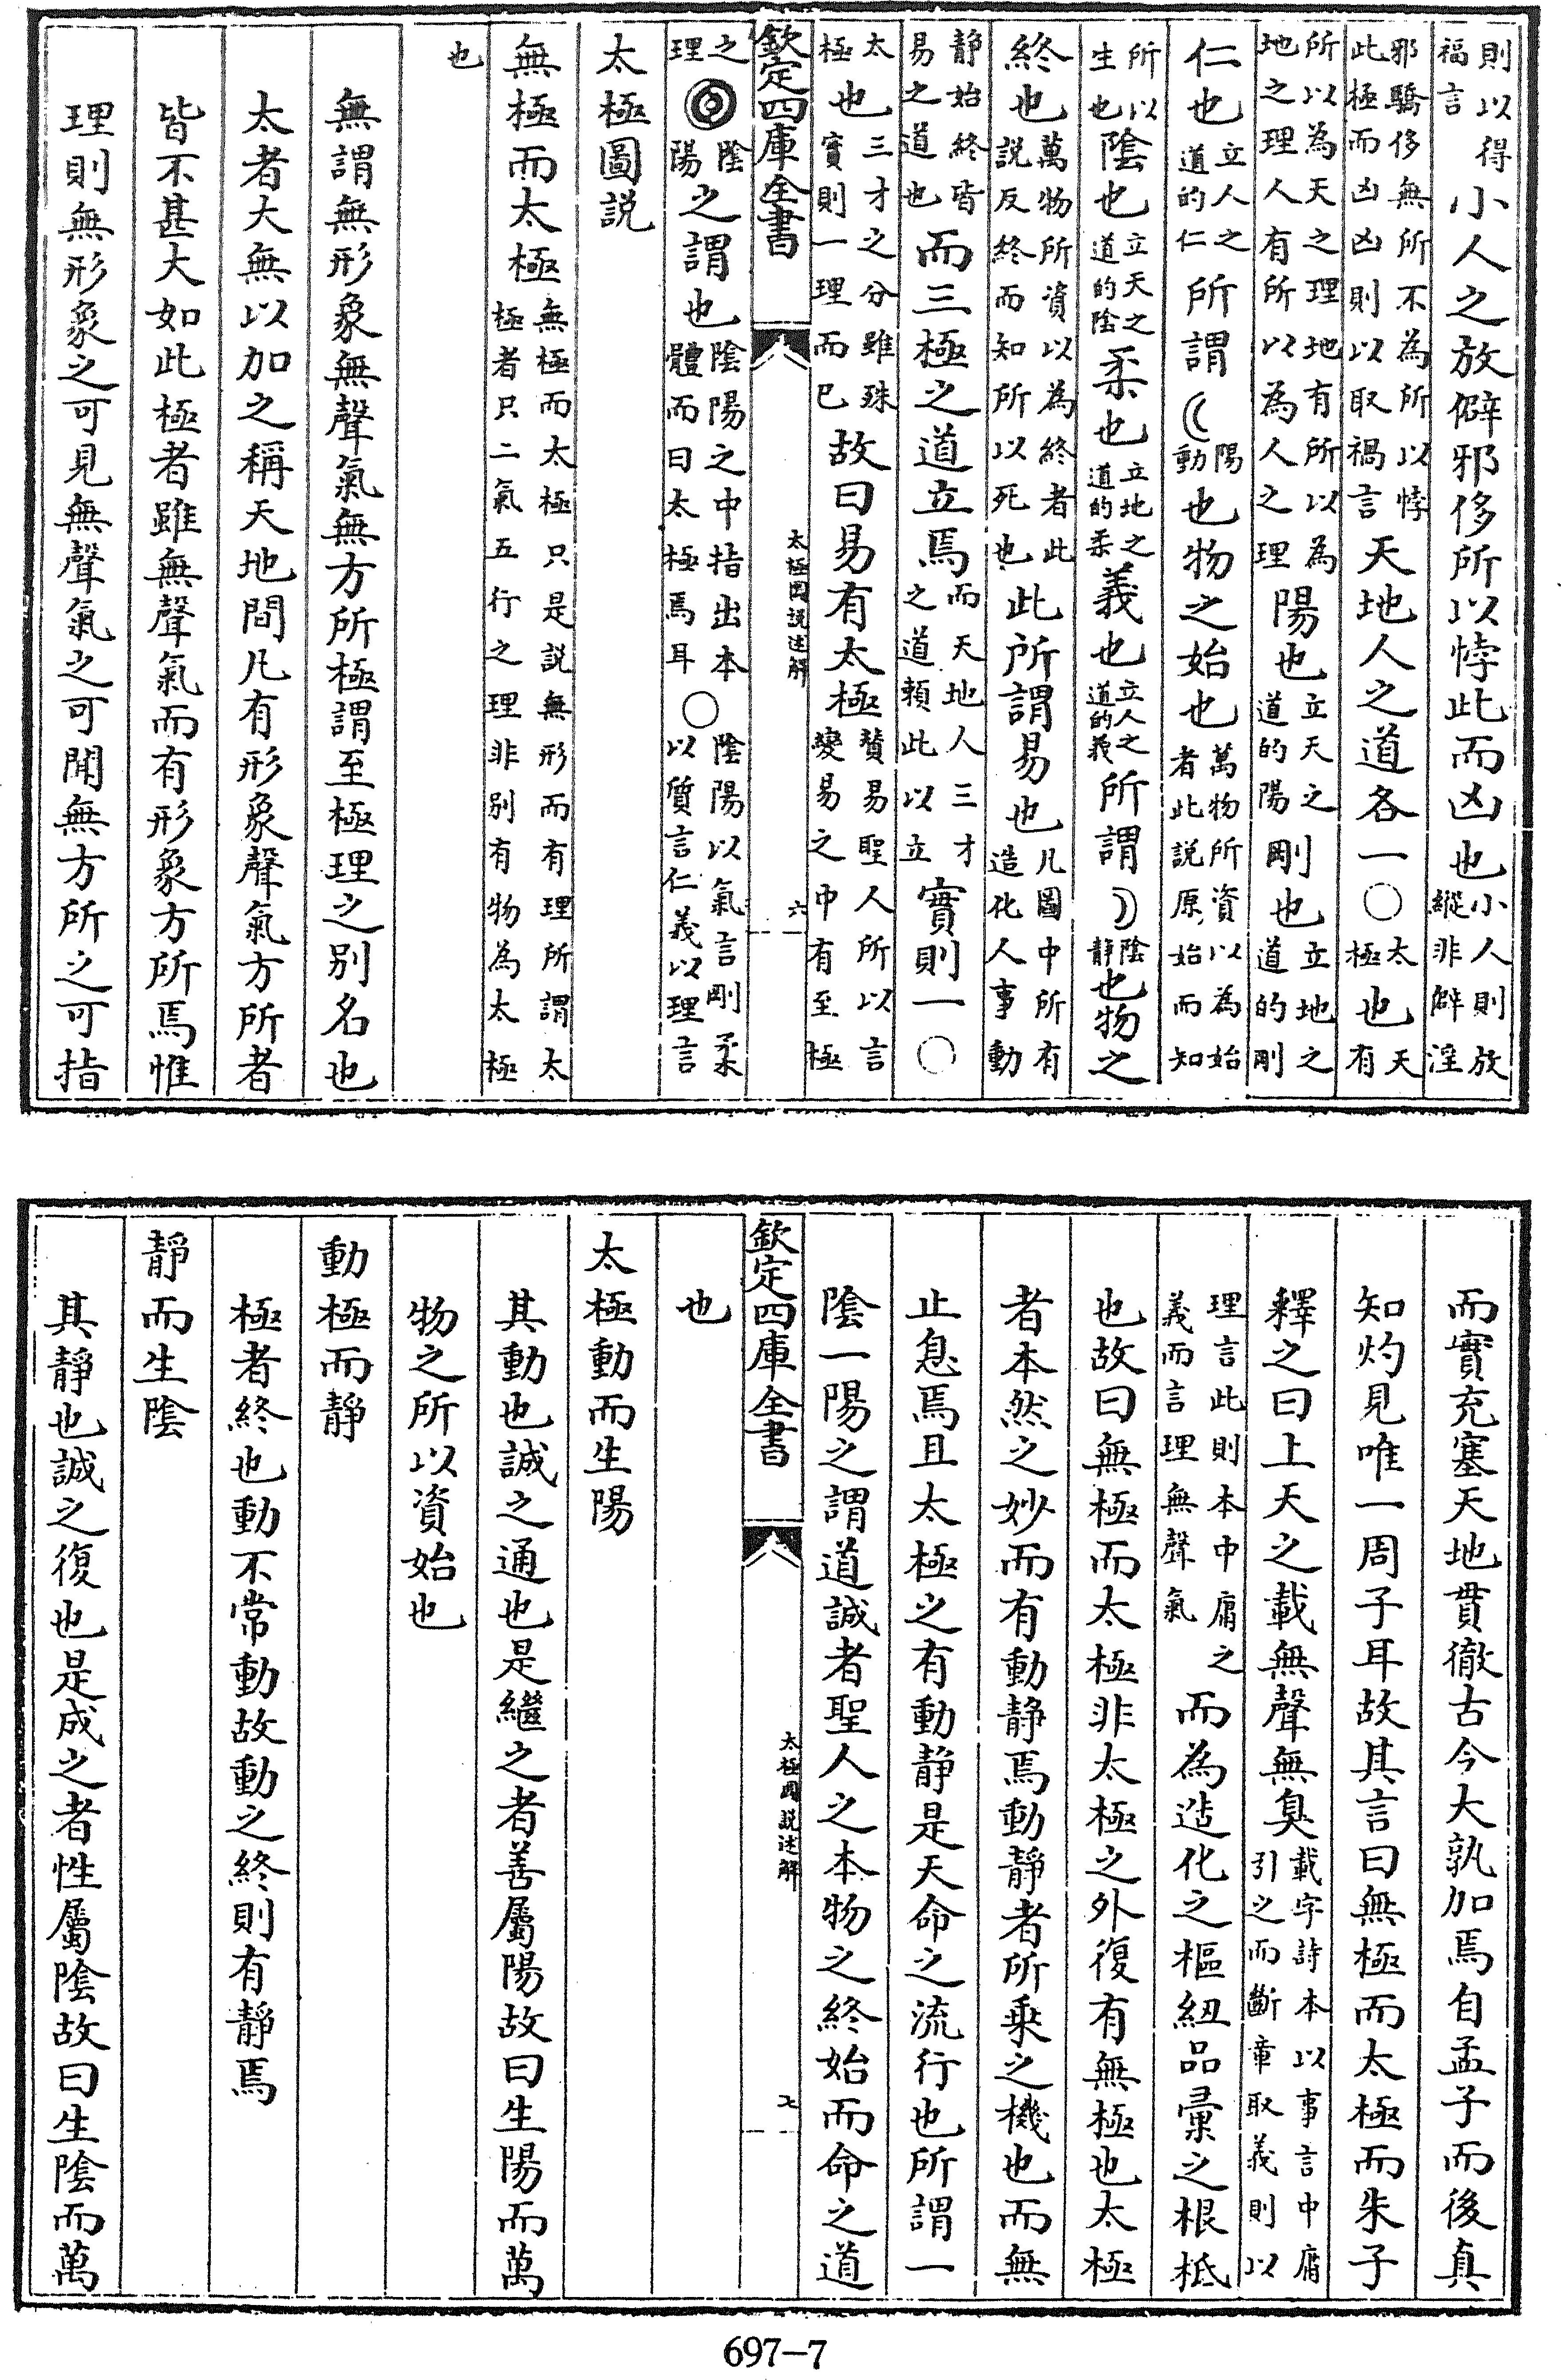 則以得福言小人之放僻邪侈所以悖此而凶也小人則放縱非僻淫
邪驕侈無所不為所以悖此極而凶凶則以取禍言天地人之道各一○太極也天有
所以為天之理地有所以為地之理人有所以為人之理陽也立天之道的陽剛也立地之道的剛
仁也立人之道的仁所謂陽動也物之始也萬物所資以為始者此説原始而知
所以生也陰也立天之道的陰柔也立地之道的柔義也立人之道的義所謂陰靜也物之
終也萬物所資以為終者此説反終而知所以死也此所謂易也凡圖中所有造化人事動
静始終皆易之道也而三極之道立焉而天地人三才之道頼此以立實則一○
太極也三才之分雖殊實則一理而已故曰易有太極贊易聖人所以言變易之中有至極
欽定四庫全書 太極圖説述解 六
之理◎陰陽之謂也陰陽之中指出本體而曰太極焉耳○陰陽以氣言剛柔以質言仁義以理言
太極圖説
無極而太極無極而太極只是説無形而有理所謂太極者只二氣五行之理非別有物為太極
也
無謂無形象無聲氣無方所極謂至極理之別名也
太者大無以加之稱天地間凡有形象聲氣方所者
皆不甚大如此極者雖無聲氣而有形象方所焉惟
理則無形象之可見無聲氣之可聞無方所之可指
而實充塞天地貫徹古今大孰加焉自孟子而後真
知灼見唯一周子耳故其言曰無極而太極而朱子
釋之曰上天之載無聲無臭載字詩本以事言中庸引之而斷章取義則以
理言此則本中庸之義而言理無聲氣而為造化之樞紐品彙之根柢
也故曰無極而太極非太極之外復有無極也太極
者本然之妙而有動静焉動靜者所乗之機也而無
止息焉且太極之有動靜是天命之流行也所謂一
陰一陽之謂道誠者聖人之本物之終始而命之道
欽定四庫全書 太極圖説述解 七
也
太極動而生陽
其動也誠之通也是繼之者善屬陽故曰生陽而萬
物之所以資始也
動極而靜
極者終也動不常動故動之終則有靜焉
靜而生陰
其靜也誠之復也是成之者性屬陰故曰生陰而萬
697-7